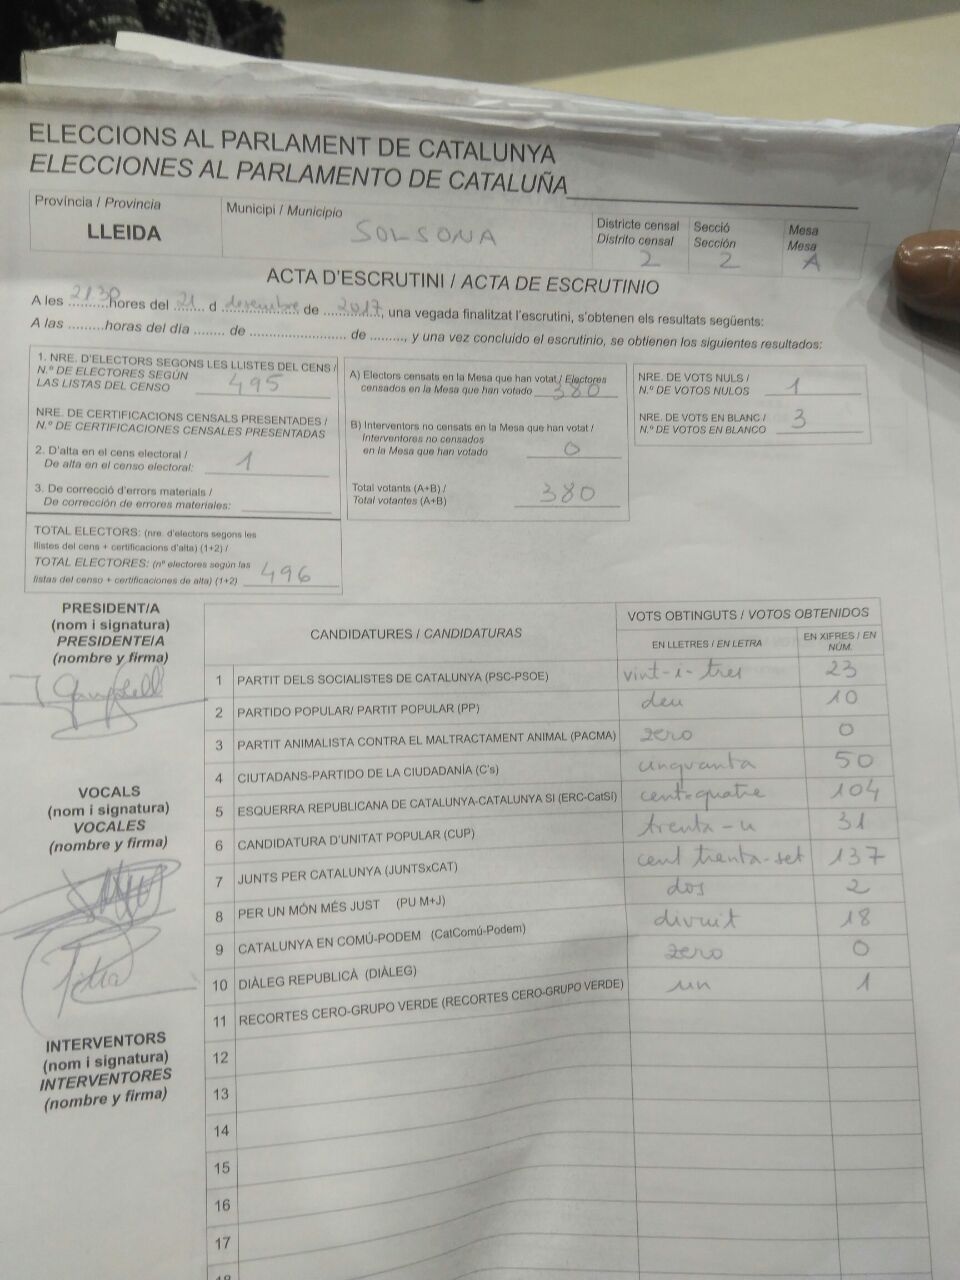 ELECCIONS AL PARLAMENT DE CATALUNYA
ELECCIONES AL PARLAMENTO DE CATALUÑA
Província / Provincia
LLEIDA
Municipi / Municipio
SOLSONA
Districte censal
Distrito censal
2
Secció
Sección
2
Mesa
Mesa
A
ACTA D'ESCRUTINI / ACTA DE ESCRUTINIO
A les 2130 hores del 21 d desembre de 2017, una vegada finalitzat l'escrutini, s'obtenen els resultats següents:
A las .........horas del día ........ de ......................... de ........., y una vez concluido el escrutinio, se obtienen los siguientes resultados:
1. NRE. D'ELECTORS SEGONS LES LLISTES DEL CENS /
N.º DE ELECTORES SEGÚN
LAS LISTAS DEL CENSO 495
NRE. DE CERTIFICACIONS CENSALS PRESENTADES /
N.º DE CERTIFICACIONES CENSALES PRESENTADAS
2. D'alta en el cens electoral /
De alta en el censo electoral: 1
3. De correcció d'errors materials /
De corrección de errores materiales:
TOTAL ELECTORS: (nre. d'electors segons les
llistes del cens + certificacions d'alta) (1+2) /
TOTAL ELECTORES: (nº electores según las
listas del censo + certificaciones de alta) (1+2) 496
A) Electors censats en la Mesa que han votat / Electores
censados en la Mesa que han votado 380
B) Interventors no censats en la Mesa que han votat /
Interventores no censados
en la Mesa que han votado 0
Total votants (A+B) /
Total votantes (A+B) 380
NRE. DE VOTS NULS /
N.º DE VOTOS NULOS 1
NRE. DE VOTS EN BLANC /
N.º DE VOTOS EN BLANCO 3
PRESIDENT/A
(nom i signatura)
PRESIDENTE/A
(nombre y firma)
VOCALS
(nom i signatura)
VOCALES
(nombre y firma)
INTERVENTORS
(nom i signatura)
INTERVENTORES
(nombre y firma)
CANDIDATURES / CANDIDATURAS
VOTS OBTINGUTS / VOTOS OBTENIDOS
EN LLETRES / EN LETRA
EN XIFRES / EN
NÚM.
1 PARTIT DELS SOCIALISTES DE CATALUNYA (PSC-PSOE) vint-i-tres 23
2 PARTIDO POPULAR/ PARTIT POPULAR (PP) deu 10
3 PARTIT ANIMALISTA CONTRA EL MALTRACTAMENT ANIMAL (PACMA) zero 0
4 CIUTADANS-PARTIDO DE LA CIUDADANÍA (C's) cinquanta 50
5 ESQUERRA REPUBLICANA DE CATALUNYA-CATALUNYA SI (ERC-CatSí) cent-quatre 104
6 CANDIDATURA D'UNITAT POPULAR (CUP) trenta-u 31
7 JUNTS PER CATALUNYA (JUNTSxCAT) cent trenta-set 137
8 PER UN MÓN MÉS JUST (PU M+J) dos 2
9 CATALUNYA EN COMÚ-PODEM (CatComú-Podem) divuit 18
10 DIÀLEG REPUBLICÀ (DIÀLEG) zero 0
11 RECORTES CERO-GRUPO VERDE (RECORTES CERO-GRUPO VERDE) un 1
12
13
14
15
16
17
18